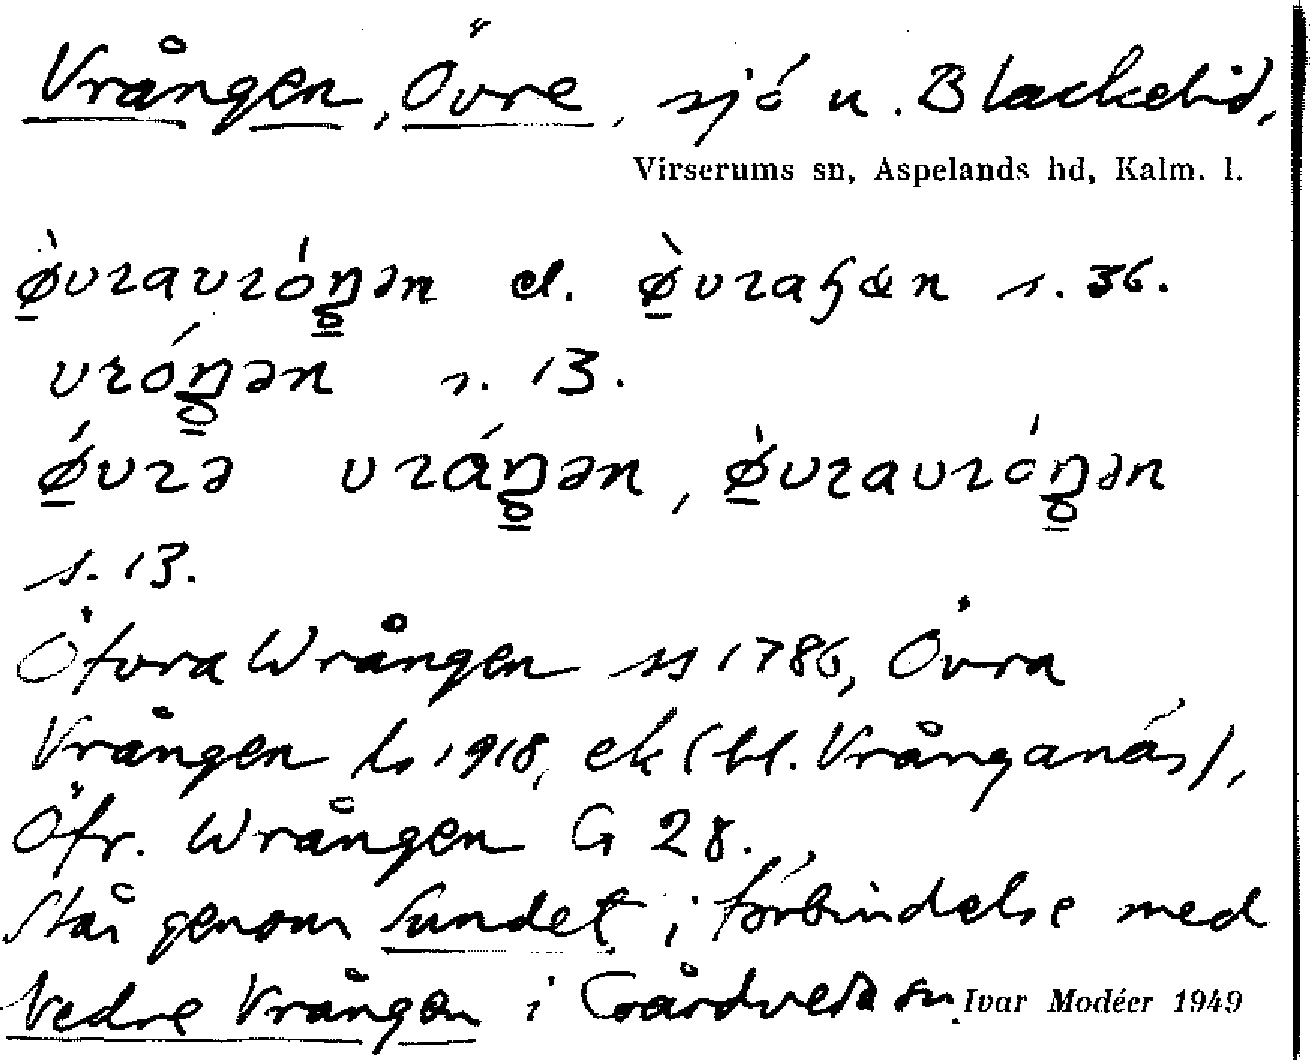 Vrången, Övre, sjö n. Blackelid,
Virserums sn, Aspelands hd, Kalm. l.
ø̀vravróŋən el. ø̀vra s. 36.
vróŋən s. 13.
ǿvrə vráŋən, ø̀vravróŋən
s. 13.
Öfvra Wrången ss 1786, Övra
Vrången hs 1918, ek (bl. Vrånganäs),
Öfr. Wrången G 28.
Står genom Sundet i förbindelse med
Nedre Vrången i Gårdveda sn. Ivar Modéer 1949